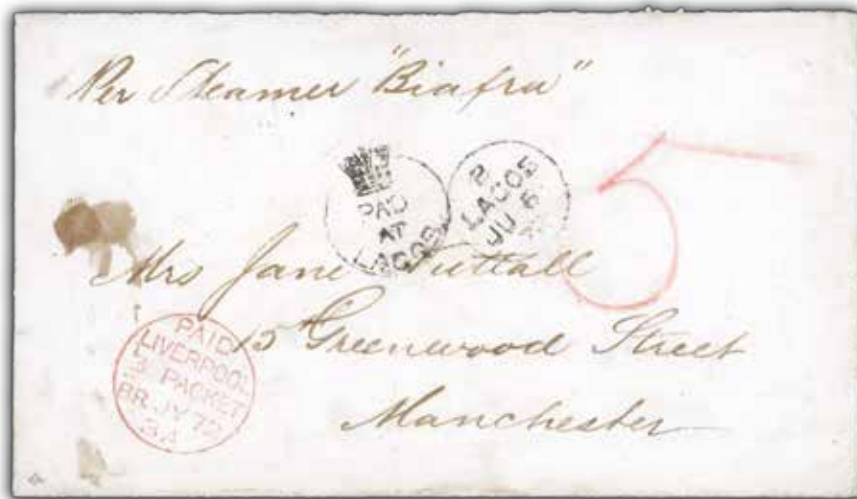 Per Steamer "Biafra"
PAID
AT
LAGOS
2
LAGOS
JU 6
5
Mrs Jane Tuttall
15 Greenwood Street
Manchester
PAID
LIVERPOOL
BR. PACKET
JY 72
3A